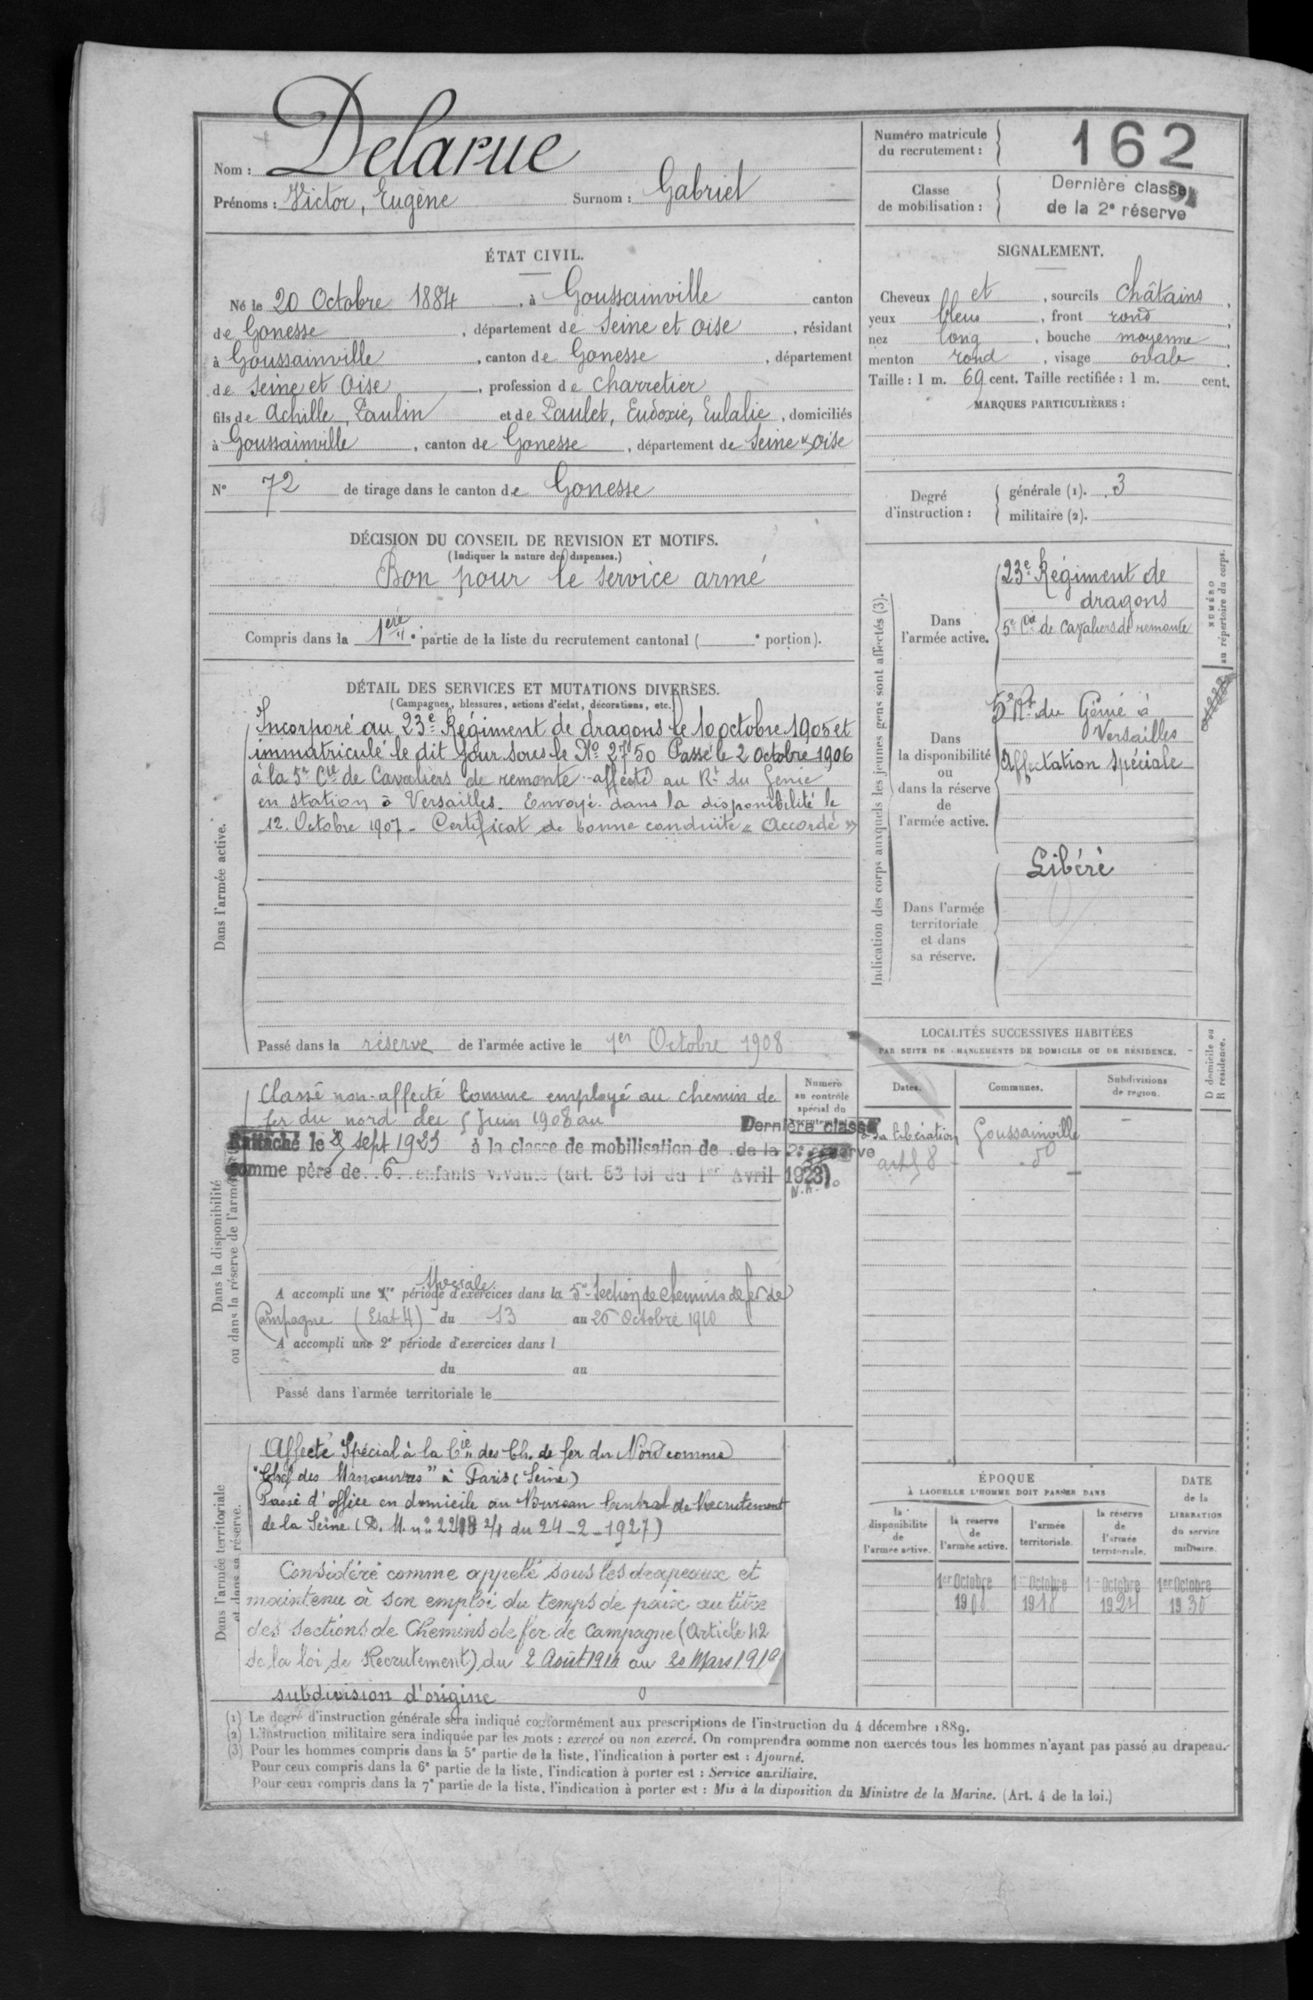 Nom : Delarue
Prénoms : Victor, Eugène Surnom : Gabriel
Numéro matricule du recrutement : 162
Classe de mobilisation : Dernière classe de la 2e réserve
ÉTAT CIVIL.
Né le 20 Octobre 1884, à Goussainville canton
de Gonesse, département de Seine et Oise, résidant
à Goussainville, canton de Gonesse, département
de Seine et Oise, profession de charretier
fils de Achille, Paulin et de Paulet, Eudoxie, Eulalie, domiciliés
à Goussainville, canton de Gonesse, département de Seine & Oise
N° 72 de tirage dans le canton de Gonesse
SIGNALEMENT.
Cheveux et, sourcils châtains,
yeux bleus, front rond,
nez long, bouche moyenne,
menton rond, visage ovale.
Taille : 1 m. 69 cent. Taille rectifiée : 1 m. cent.
MARQUES PARTICULIÈRES :
Degré d'instruction : générale (1). 3
militaire (2).
DÉCISION DU CONSEIL DE REVISION ET MOTIFS.
(Indiquer la nature des dispenses.)
Bon pour le service armé
Compris dans la 1ère partie de la liste du recrutement cantonal ( e portion).
DÉTAIL DES SERVICES ET MUTATIONS DIVERSES.
(Campagnes, blessures, actions d'éclat, décorations, etc.)
Dans l'armée active.
Incorporé au 23e Régiment de dragons le 10 octobre 1905 et
immatriculé le dit jour sous le No 2750 Passé le 2 Octobre 1906
à la 5e Cie de Cavaliers de remonte affecté au Rt du Génie
en station à Versailles. Envoyé dans la disponibilité le
12 Octobre 1907 - Certificat de bonne conduite « Accordé »
Passé dans la réserve de l'armée active le 1er Octobre 1908
Indication des corps auxquels les jeunes gens sont affectés (3).
NUMÉRO au répertoire du corps.
Dans l'armée active.
23e Régiment de
dragons
5e Cie de Cavaliers de remonte
Dans la disponibilité ou dans la réserve de l'armée active.
5e Rt du Génie à
Versailles
Affectation Spéciale
Dans l'armée territoriale et dans sa réserve.
Libéré
Dans la disponibilité ou dans la réserve de l'armée
Numéro au contrôle spécial du
Classé non-affecté comme employé au chemin de
fer du nord du 5 Juin 1908 au
le sept 1923 à la classe de mobilisation de Dernière classe de la 2e réserve
comme père de 6 enfants vivants (art. 53 loi du 1er Avril 1923)
A accompli une 1re période d'exercices dans la 5e Section de chemins de fer de
Campagne (Etat 4) du 13 au 26 Octobre 1910
spéciale
A accompli une 2e période d'exercices dans l
du au
Passé dans l'armée territoriale le
LOCALITÉS SUCCESSIVES HABITÉES
PAR SUITE DE CHANGEMENTS DE DOMICILE OU DE RÉSIDENCE.
Dates. Communes. Subdivisions de région. D domicile ou R résidence.
Sa libération Goussainville
Dans l'armée territoriale et dans sa réserve.
Affecté Spécial à la Cie des Ch. de fer du Nord comme
"Chef des Manoeuvres" à Paris (Seine)
Passé d'office en domicile au Bureau Central de Recrutement
de la Seine (D. M. du 24-2-1927)
Considéré comme appelé sous les drapeaux et
maintenu à son emploi du temps de paix au titre
des sections de Chemins de fer de Campagne (Article 42
de la loi de Recrutement) du 2 Août 1914 au 20 Mars 1919
subdivision d'origine
ÉPOQUE
À LAQUELLE L'HOMME DOIT PASSER DANS
DATE de la LIBÉRATION du service militaire.
la disponibilité de l'armée active. la réserve de l'armée active. l'armée territoriale. la réserve de l'armée territoriale.
1er Octobre 1908 1er Octobre 1918 1er Octobre 1924 1er Octobre 1930
(1) Le degré d'instruction générale sera indiqué conformément aux prescriptions de l'instruction du 4 décembre 1889.
(2) L'instruction militaire sera indiquée par les mots : exercé ou non exercé. On comprendra comme non exercés tous les hommes n'ayant pas passé au drapeau.
(3) Pour les hommes compris dans la 5e partie de la liste, l'indication à porter est : Ajourné.
Pour ceux compris dans la 6e partie de la liste, l'indication à porter est : Service auxiliaire.
Pour ceux compris dans la 7e partie de la liste, l'indication à porter est : Mis à la disposition du Ministre de la Marine. (Art. 4 de la loi.)